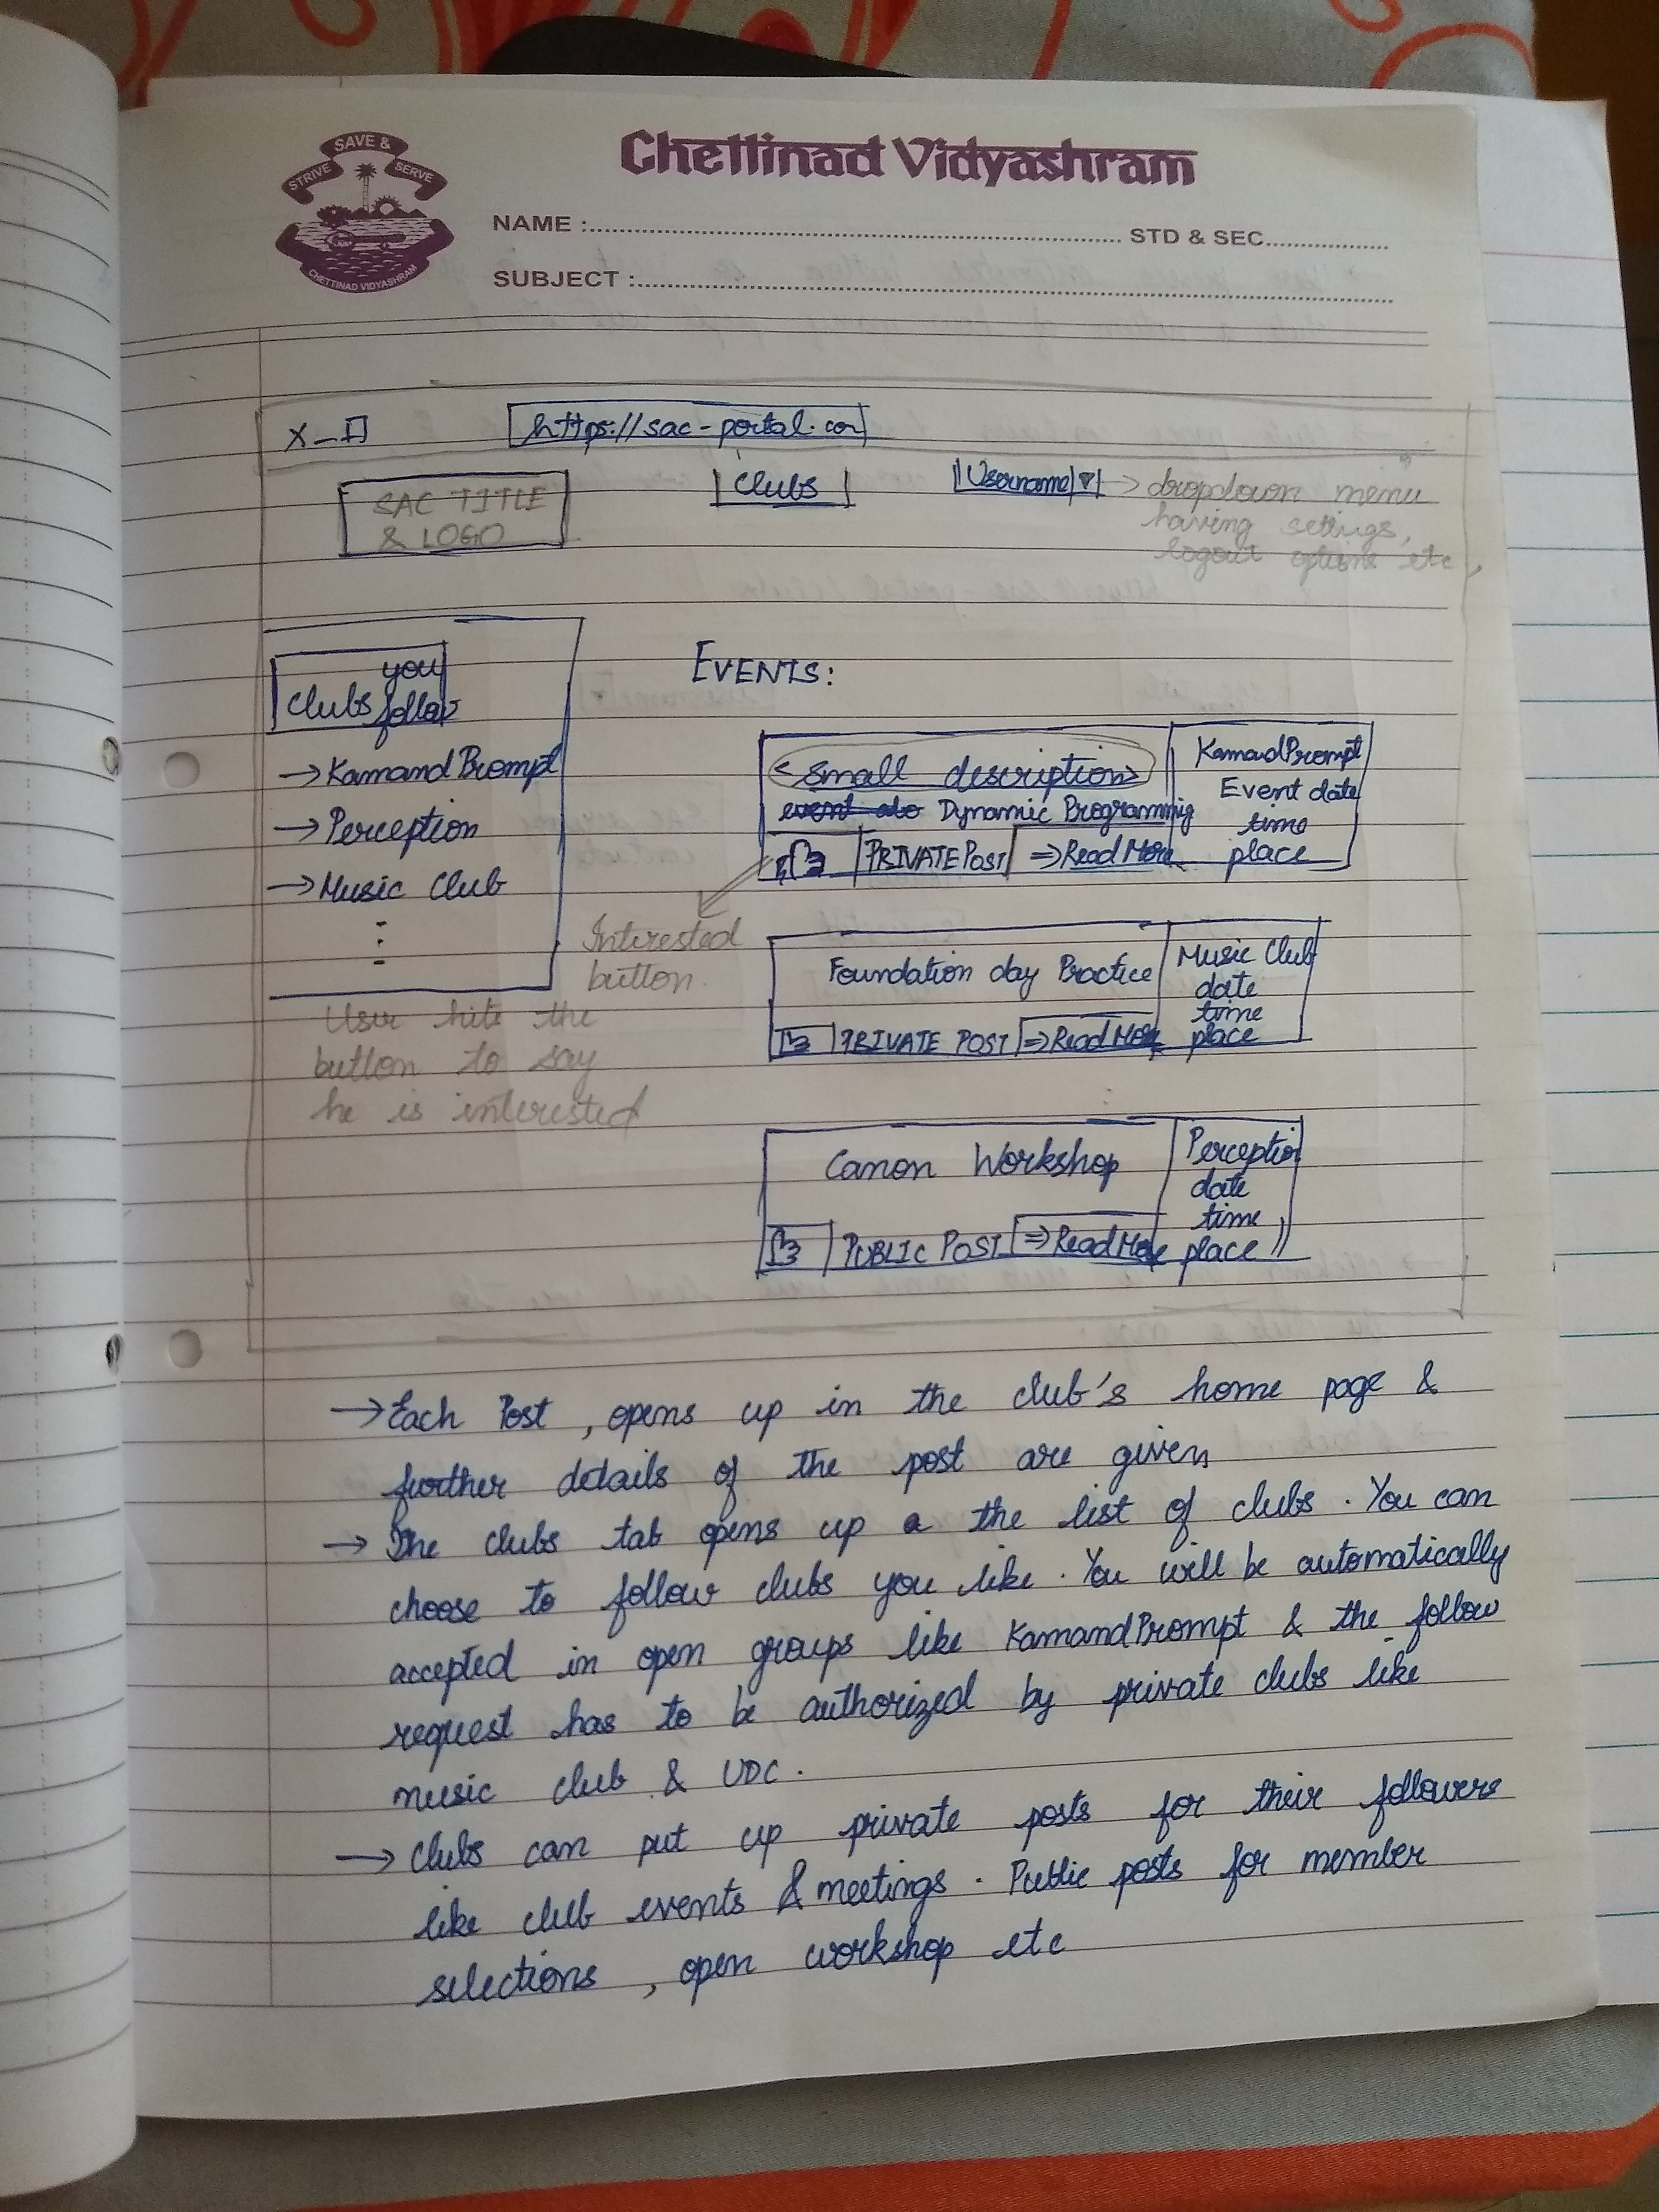 STRIVE SAVE & SERVE
CHETTINAD VIDYASHRAM
Chettinad Vidyashram
NAME : STD & SEC
SUBJECT :
X – https://sac-portal.com
SAC TITLE & LOGO
Clubs
Username ▾ → dropdown menu
having settings,
logout options etc,
clubs you follow
→ KamandPrompt
→ Perception
→ Music Club
EVENTS:
<small description>
Dynamic Programming
PRIVATE POST ⇒ Read More
KamandPrompt
Event date
time
place
Interested
button.
User hits the
button to say
he is interested
Foundation day Practice
PRIVATE POST ⇒ Read More
Music Club
date
time
place
Canon Workshop
PUBLIC POST ⇒ Read More
Perception
date
time
place
→ Each Post, opens up in the club's home page &
further details of the post are given
→ The clubs tab opens up a the list of clubs. You can
choose to follow clubs you like. You will be automatically
accepted in open groups like KamandPrompt & the follow
request has to be authorized by private clubs like
music club & UDC.
→ Clubs can put up private posts for their followers
like club events & meetings. Public posts for member
selections, open workshop etc